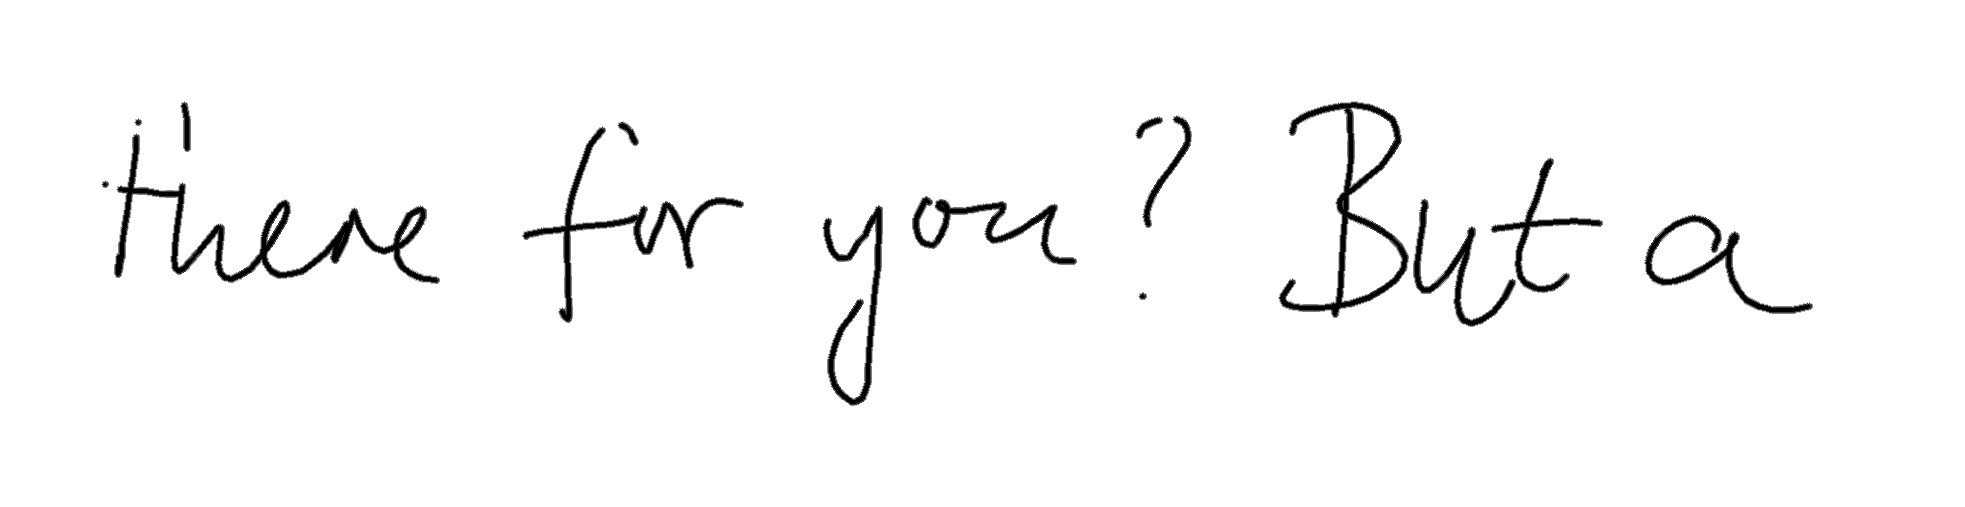 there for you? But a